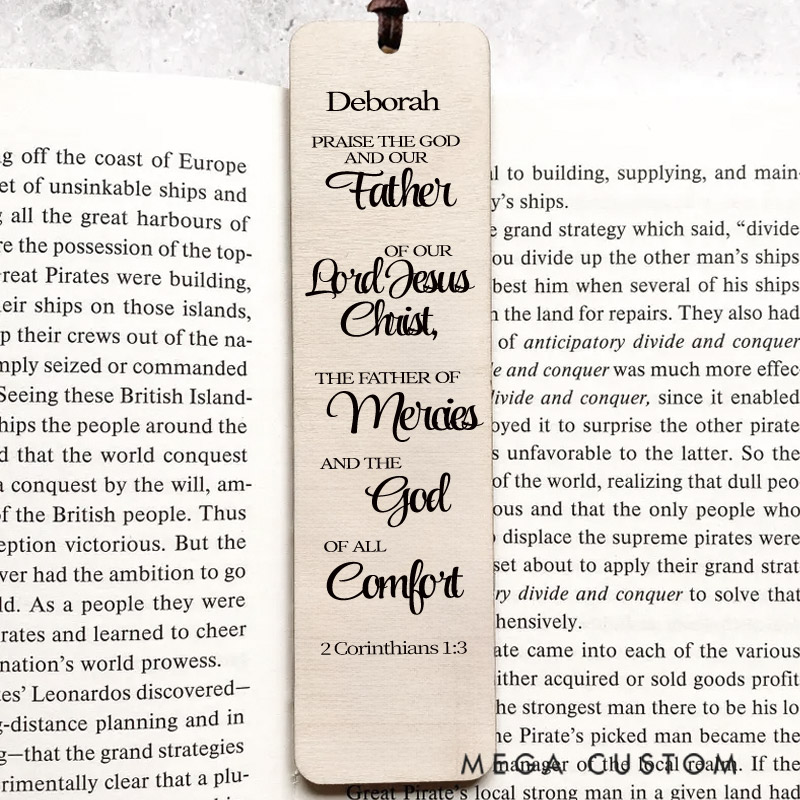 Deborah
PRAISE THE GOD
AND OUR
Father
OF OUR
Lord Jesus
Christ,
THE FATHER OF
Mercies
AND THE
God
OF ALL
Comfort
2 Corinthians 1:3
off the coast of Europe
of unsinkable ships and
all the great harbours of
the possession of the top-
Pirates were building,
ships on those islands,
their crews out of the na-
seized or commanded
Seeing these British Island-
the people around the
that the world conquest
conquest by the will, am-
the British people. Thus
victorious. But the
had the ambition to go
As a people they were
and learned to cheer
nation's world prowess.
Leonardos discovered—
planning and in
—that the grand strategies
clear that a plu-
to building, supplying, and main-
ships.
grand strategy which said, “divide
you divide up the other man's ships
best him when several of his ships
the land for repairs. They also had
of anticipatory divide and conquer
and conquer was much more effec-
divide and conquer, since it enabled
it to surprise the other pirate
unfavorable to the latter. So the
of the world, realizing that dull peo
and that the only people who
displace the supreme pirates were
set about to apply their grand strat
divide and conquer to solve that
came into each of the various
either acquired or sold goods profit
strongest man there to be his lo
Pirate's picked man became the
manager of the local realm. If the
Great Pirate's local strong man in a given land had
MEGA CUSTOM